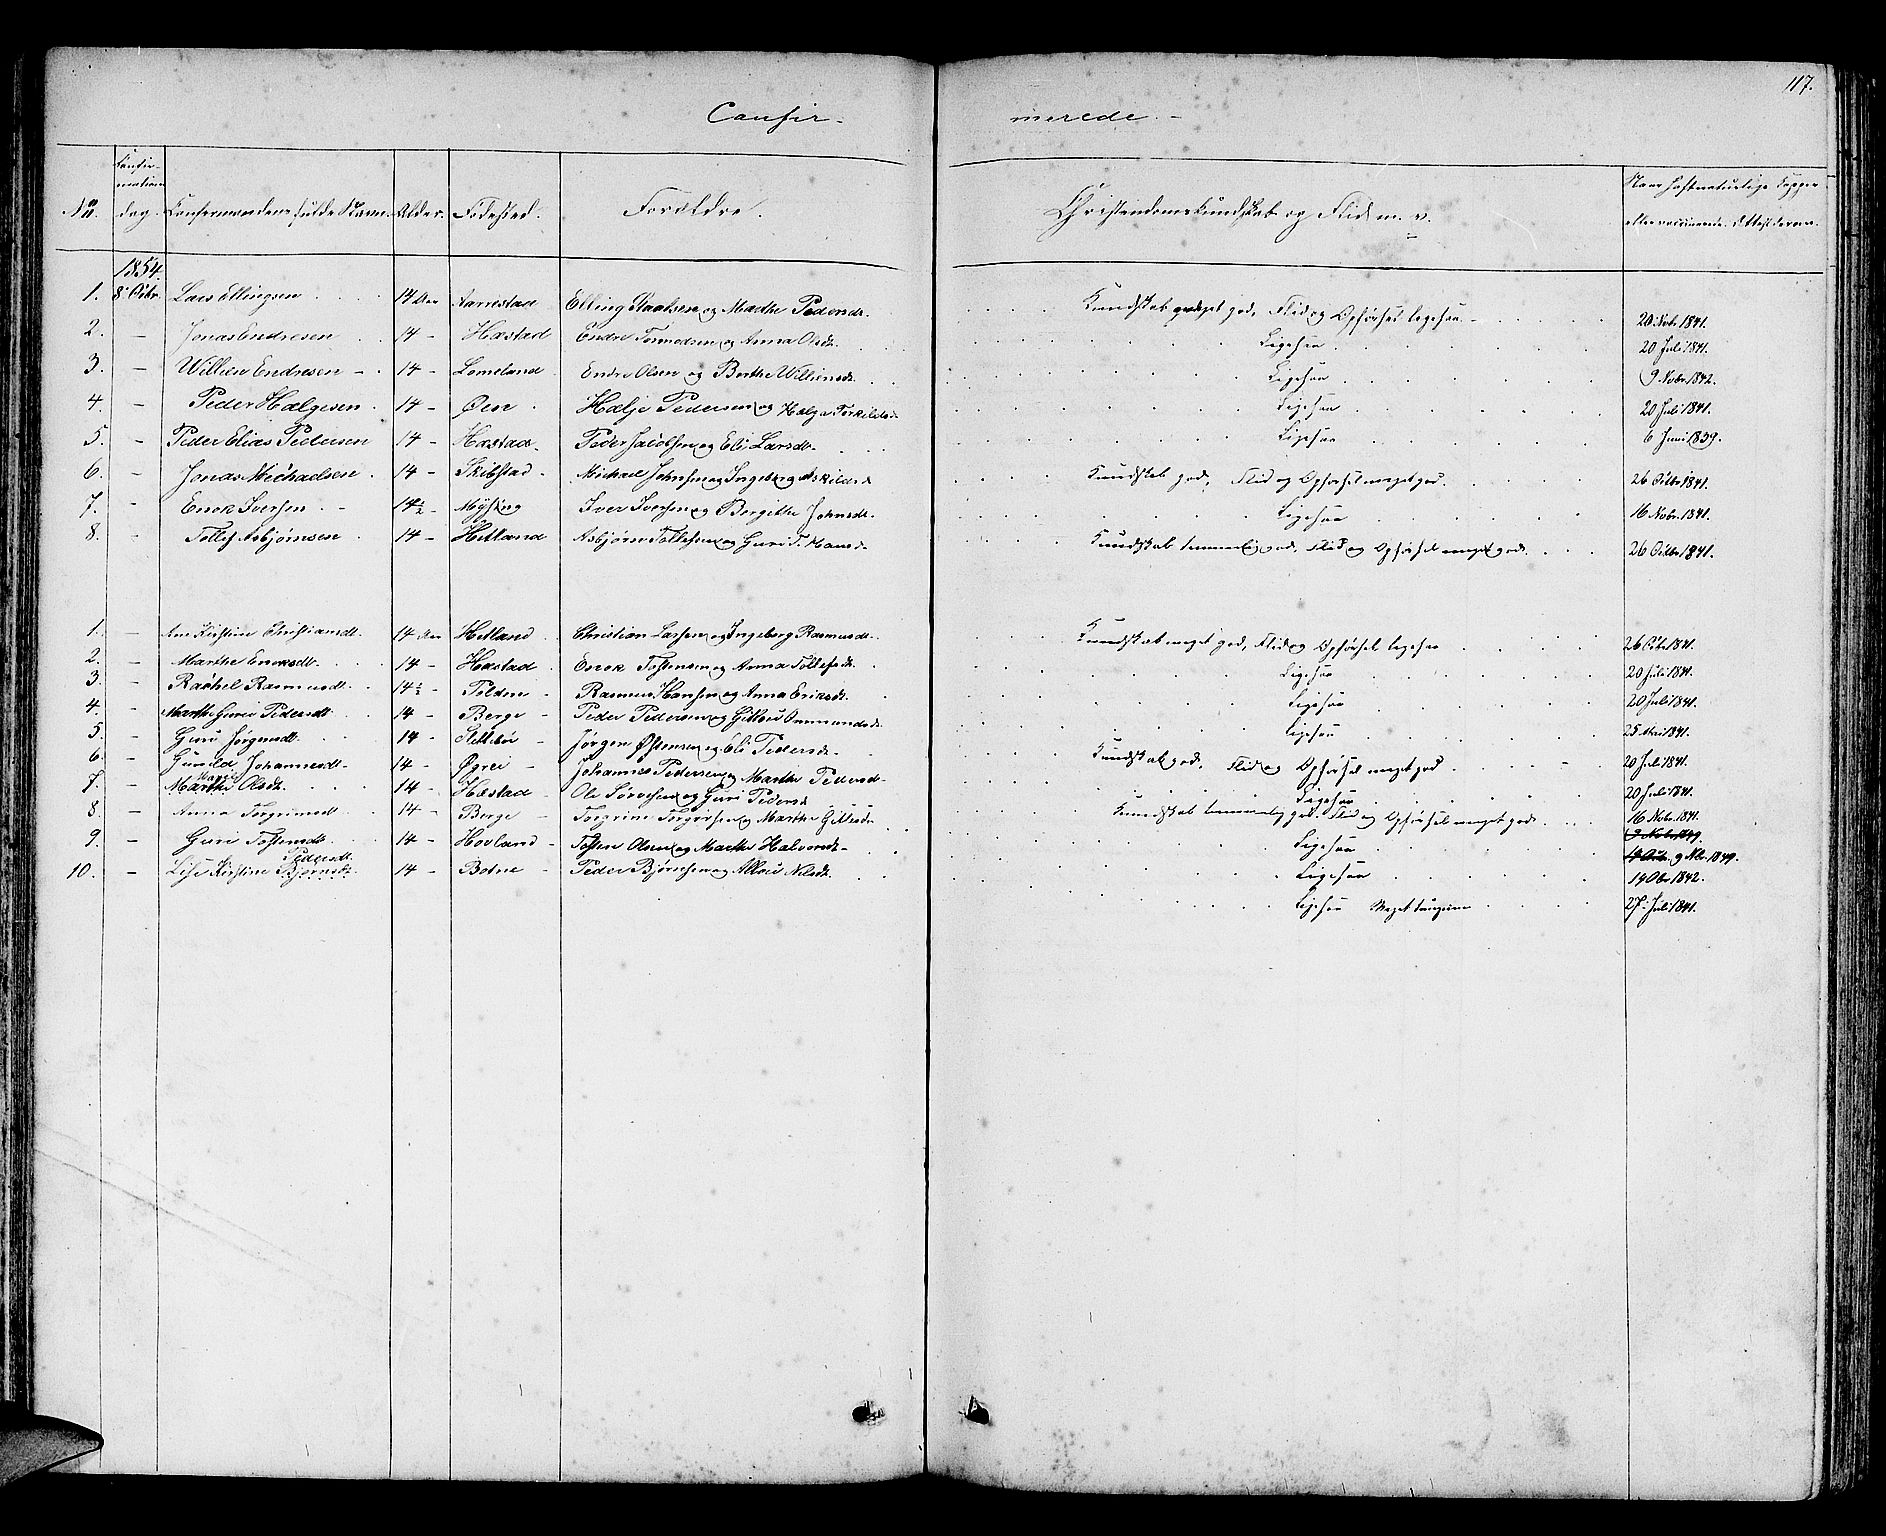 117.
Confir-
merede. -
No
Confir-
mations
dag.
Confirmandens fulde Navn.
Alder.
Fødested.
Forældre.
Christendomskundskab og Flid m. v.
Naar havt naturlige Kopper
eller vaccinerede. Attest derom.
1854.
1. 8 Octbr. Lars Ellingsen 14 Aar Aarrestad Elling Knutsen og Marthe Pedersdt. Kundskab meget god, Flid og Opførsel ligesaa - 20 Novbr 1841.
2. - Jonas Endresen 14 - Hæstad Endre Tønnesen og Anna Olsdt. Ligesaa 20 Juli 1841.
3. - Willien Endresen - 14 - Lomeland Endre Olsen og Berthe Williensdt. Ligesaa 9 Novbr. 1842.
4. - Peder Hælgesen 14 - Øen Hælje Pedersen og Hælga Torkildsdt Ligesaa 20 Juli 1841.
5. - Peder Elias Pedersen 14 - Hæstad. Peder Jacobsen og Eli Larsdt. Ligesaa 6 Juni 1839.
6. - Jonas Michaelsen 14 - Skibstad Michael Johnsen og Ingeborg Askildsd Kundskab god, Flid og Opførsel meget god. 26 Octbr 1841.
7. - Enok Iversen - 14½ - Mysing Iver Iversen og Bergithe Johnsdt. Ligesaa 16 Novbr. 1841.
8. - Tollef Asbjørnsen 14 - Hetland Asbjørn Tollefsen og Guri T. Hansd. Kundskab temmelig god, Flid og Opførsel meget god. 26 Octbr 1841.
1. - Ane Kirstine Christiansdt. 14 Aar Hetland Christian Larsen og Ingeborg Rasmusdt. Kundskab meget god, Flid og Opførsel ligesaa 26 Octbr 1841.
2. - Marthe Enoksdt. 14 - Hæstad Enok Tostensen og Anna Tollefsdt. Ligesaa 20 Juli 1841.
3. - Rachel Rasmusdt. 14½ - Foldene - Rasmus Hansen og Anna Eriksdt. Ligesaa 20 Juli 1841.
4. - Marthe Gurie Pedersdt 14 - Berge - Peder Pedersen og Gitlou Ommundsdt Ligesaa 25 1841.
5. - Guri Jørgensdt. 14 - Slettebø - Jørgen Østensen og Eli Pedersdt - Kundskab god, Flid og Opførsel meget god 20 Juli 1841.
6. - Gunild Johannesdt - 14 - Øgrei - Johannes Pedersen og Marthe Pedersdt - Ligesaa 20 Juli 1841.
7. - Marthe Olsdt. 14 - Hæstad - Ole Sørensen og Guri Pedersd Kundskab temmelig god. Flid og Opførsel meget god. 16 Novbr. 1841.
8 - Anna Torgrimsd 14 - Berge - Torgrim Torgersen og Marthe Gitlesdt Ligesaa 9 Nbr. 1849.
9. - Guri Tostensdt 14 - Hovland - Tosten Olsen og Marthe Halvorsdt - Ligesaa 14 Obr 1842.
Pedersdt
10. - Lise Kirstine Bjørnsdt 14 - Botne - Peder Bjørnsen og Allou Nilsdt. Ligesaa Meget tungnem 27. Juli 1841.